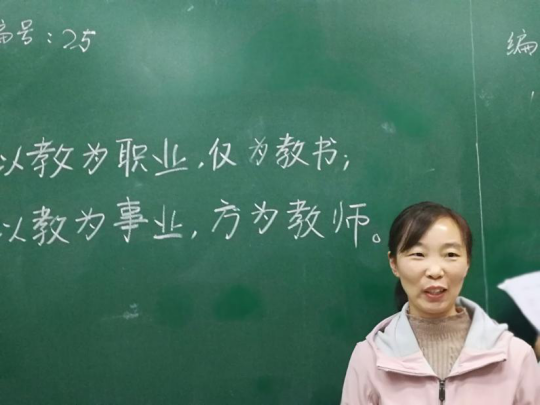 编号:25
编
以教为职业,仅为教书;
以教为事业,方为教师。